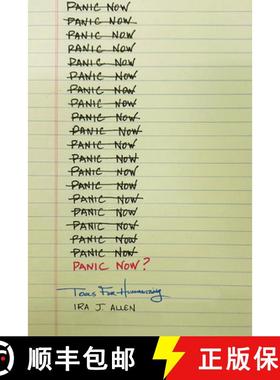 PANIC NOW
PANIC NOW
PANIC NOW
PANIC NOW
PANIC NOW
PANIC NOW
PANIC NOW
PANIC NOW
PANIC NOW
PANIC NOW
PANIC NOW
PANIC NOW
PANIC NOW
PANIC NOW
PANIC NOW
PANIC NOW
PANIC NOW
PANIC NOW
PANIC NOW
PANIC NOW?
Tools For Humanizing
IRA J. ALLEN
正版保障